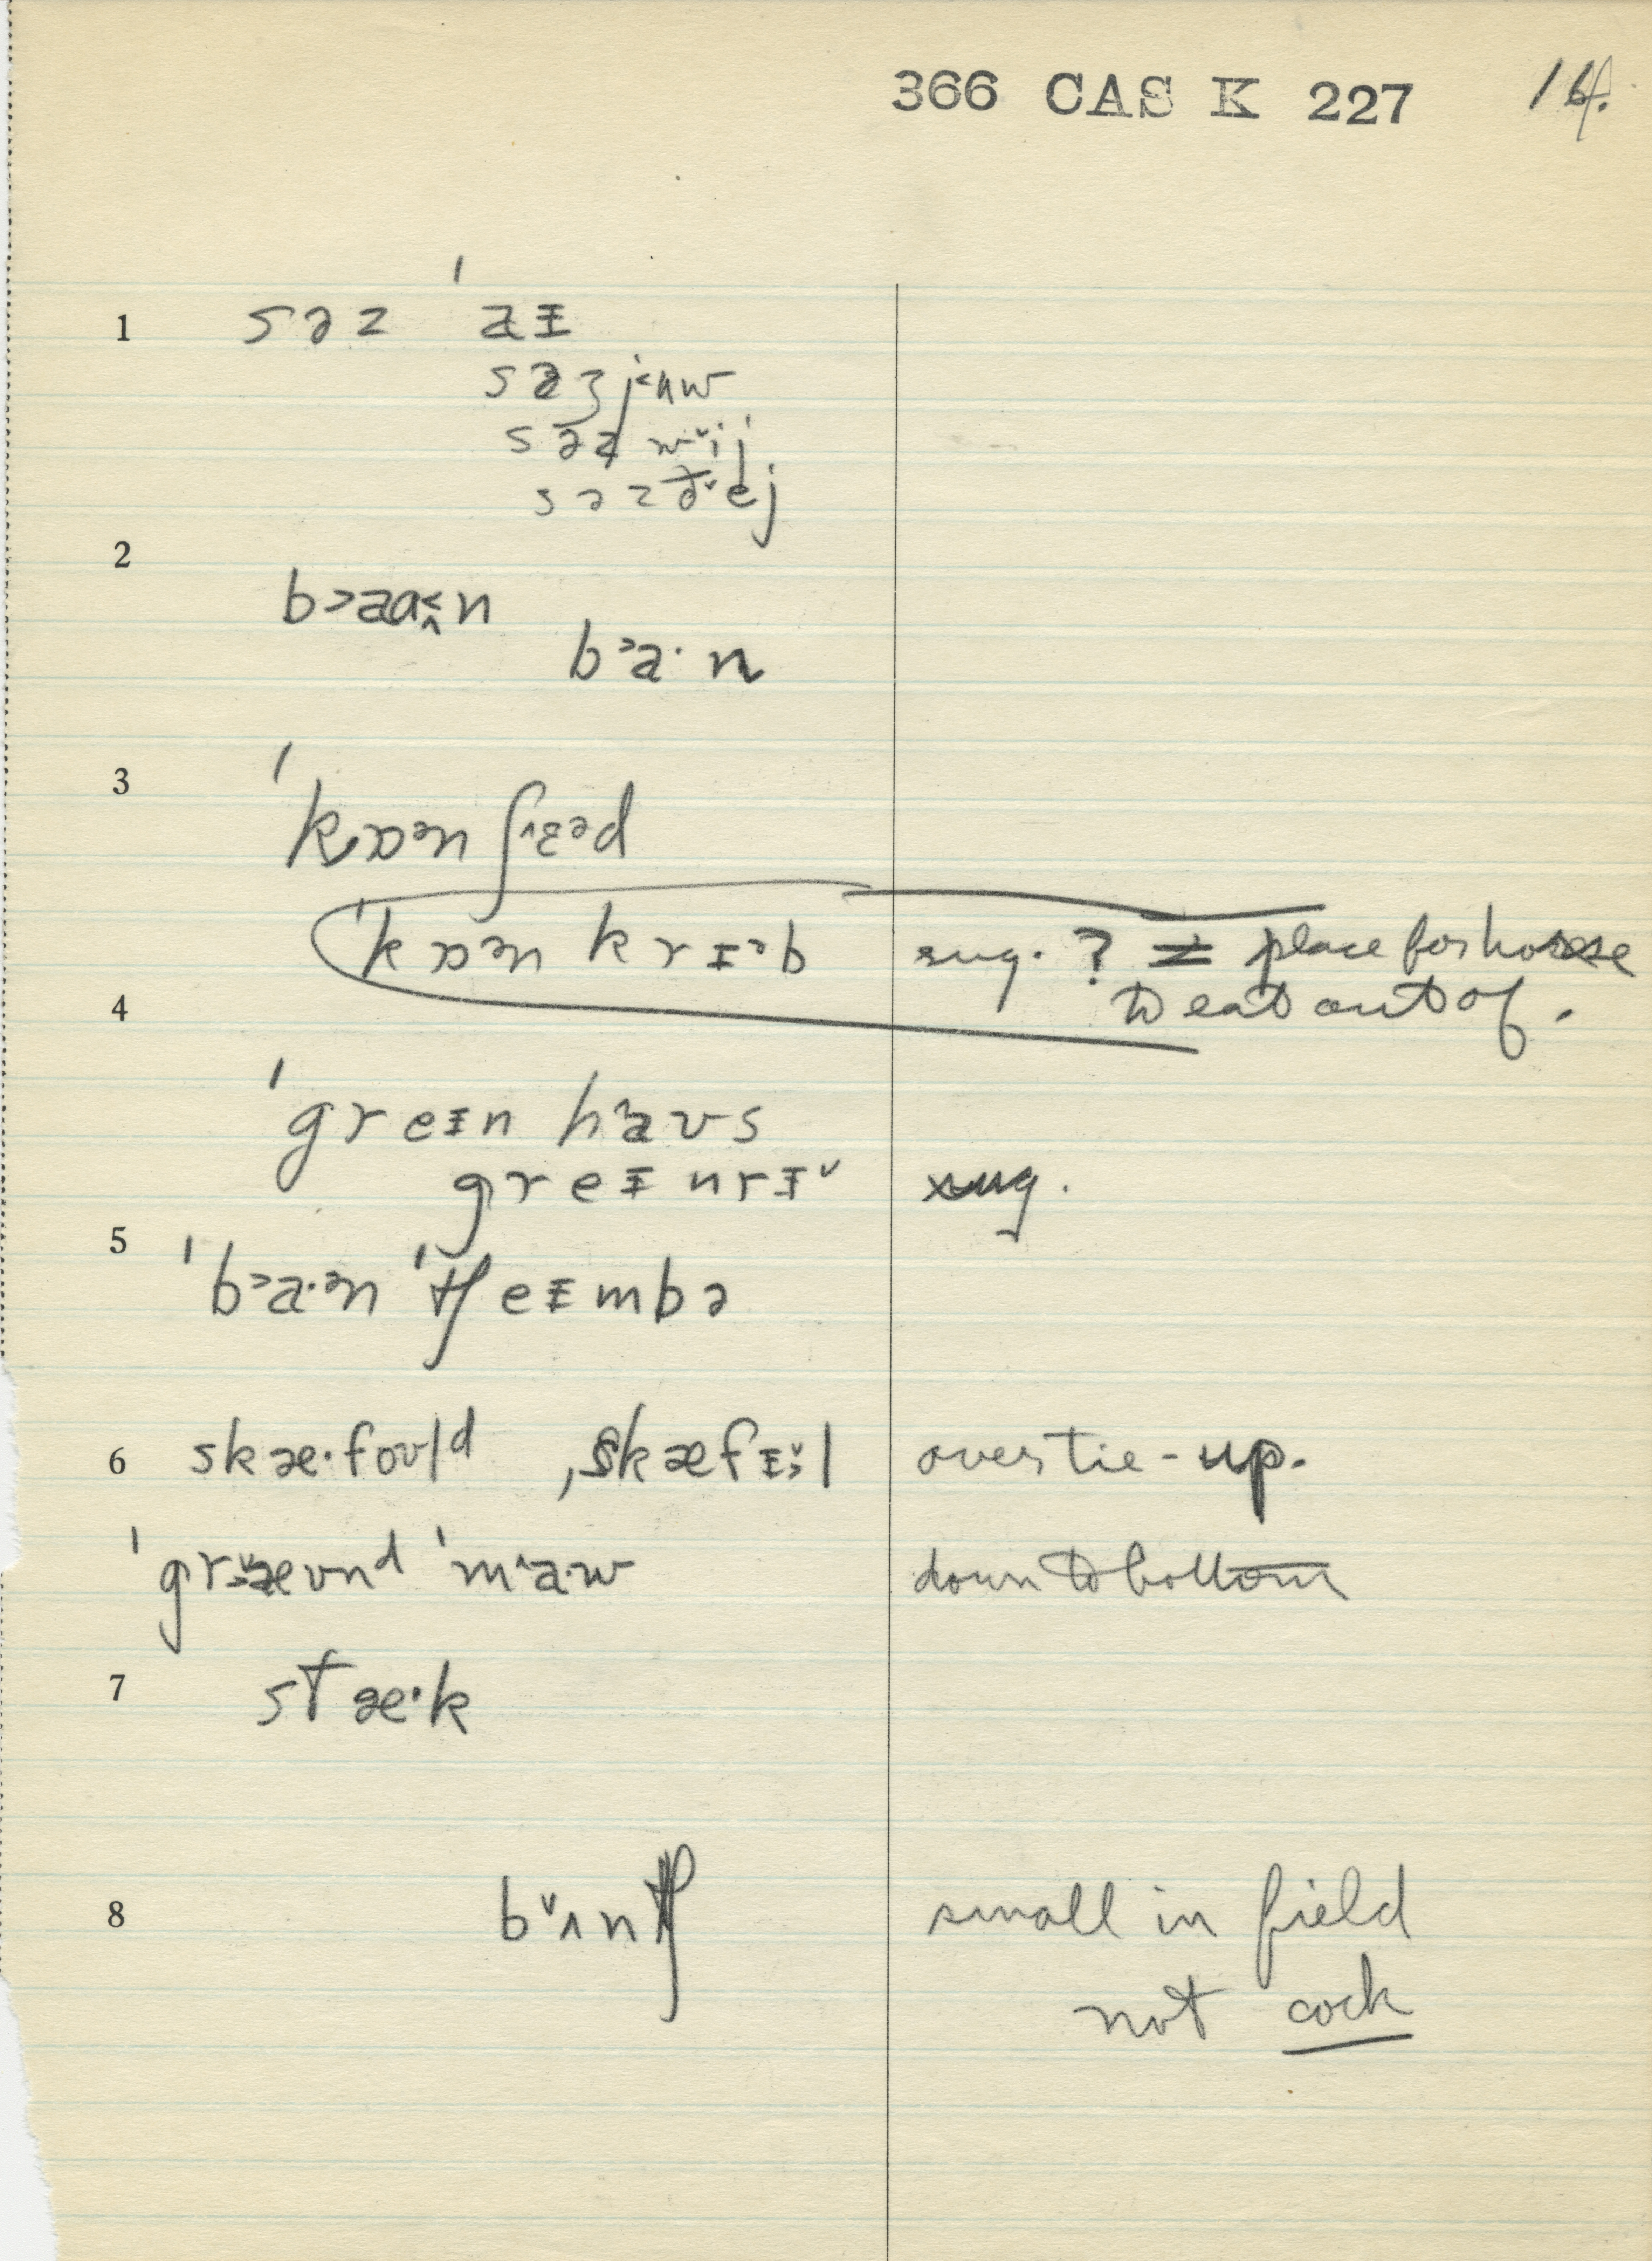 366 CAS K 227 14.
1 səz ˈaɪ
səz
səz
səz
2
b˃aɑ˂n
b˃a·n
3
ˈkɒən ʃɛəd
ˈkɒən krɪəb sug. ? ≠ place for horse
4 to eat out of.
ˈgreɪn haʊs
greɪnrɪ sug.
5
ˈb˃a·ən ˈtʃeɪmbə
6 skæ·foʊld , skæfɪl over tie-up.
ˈgræʊnd ˈma·w down to bottom
7 stæ·k
8 b˅ʌntʃ small in field
not cock